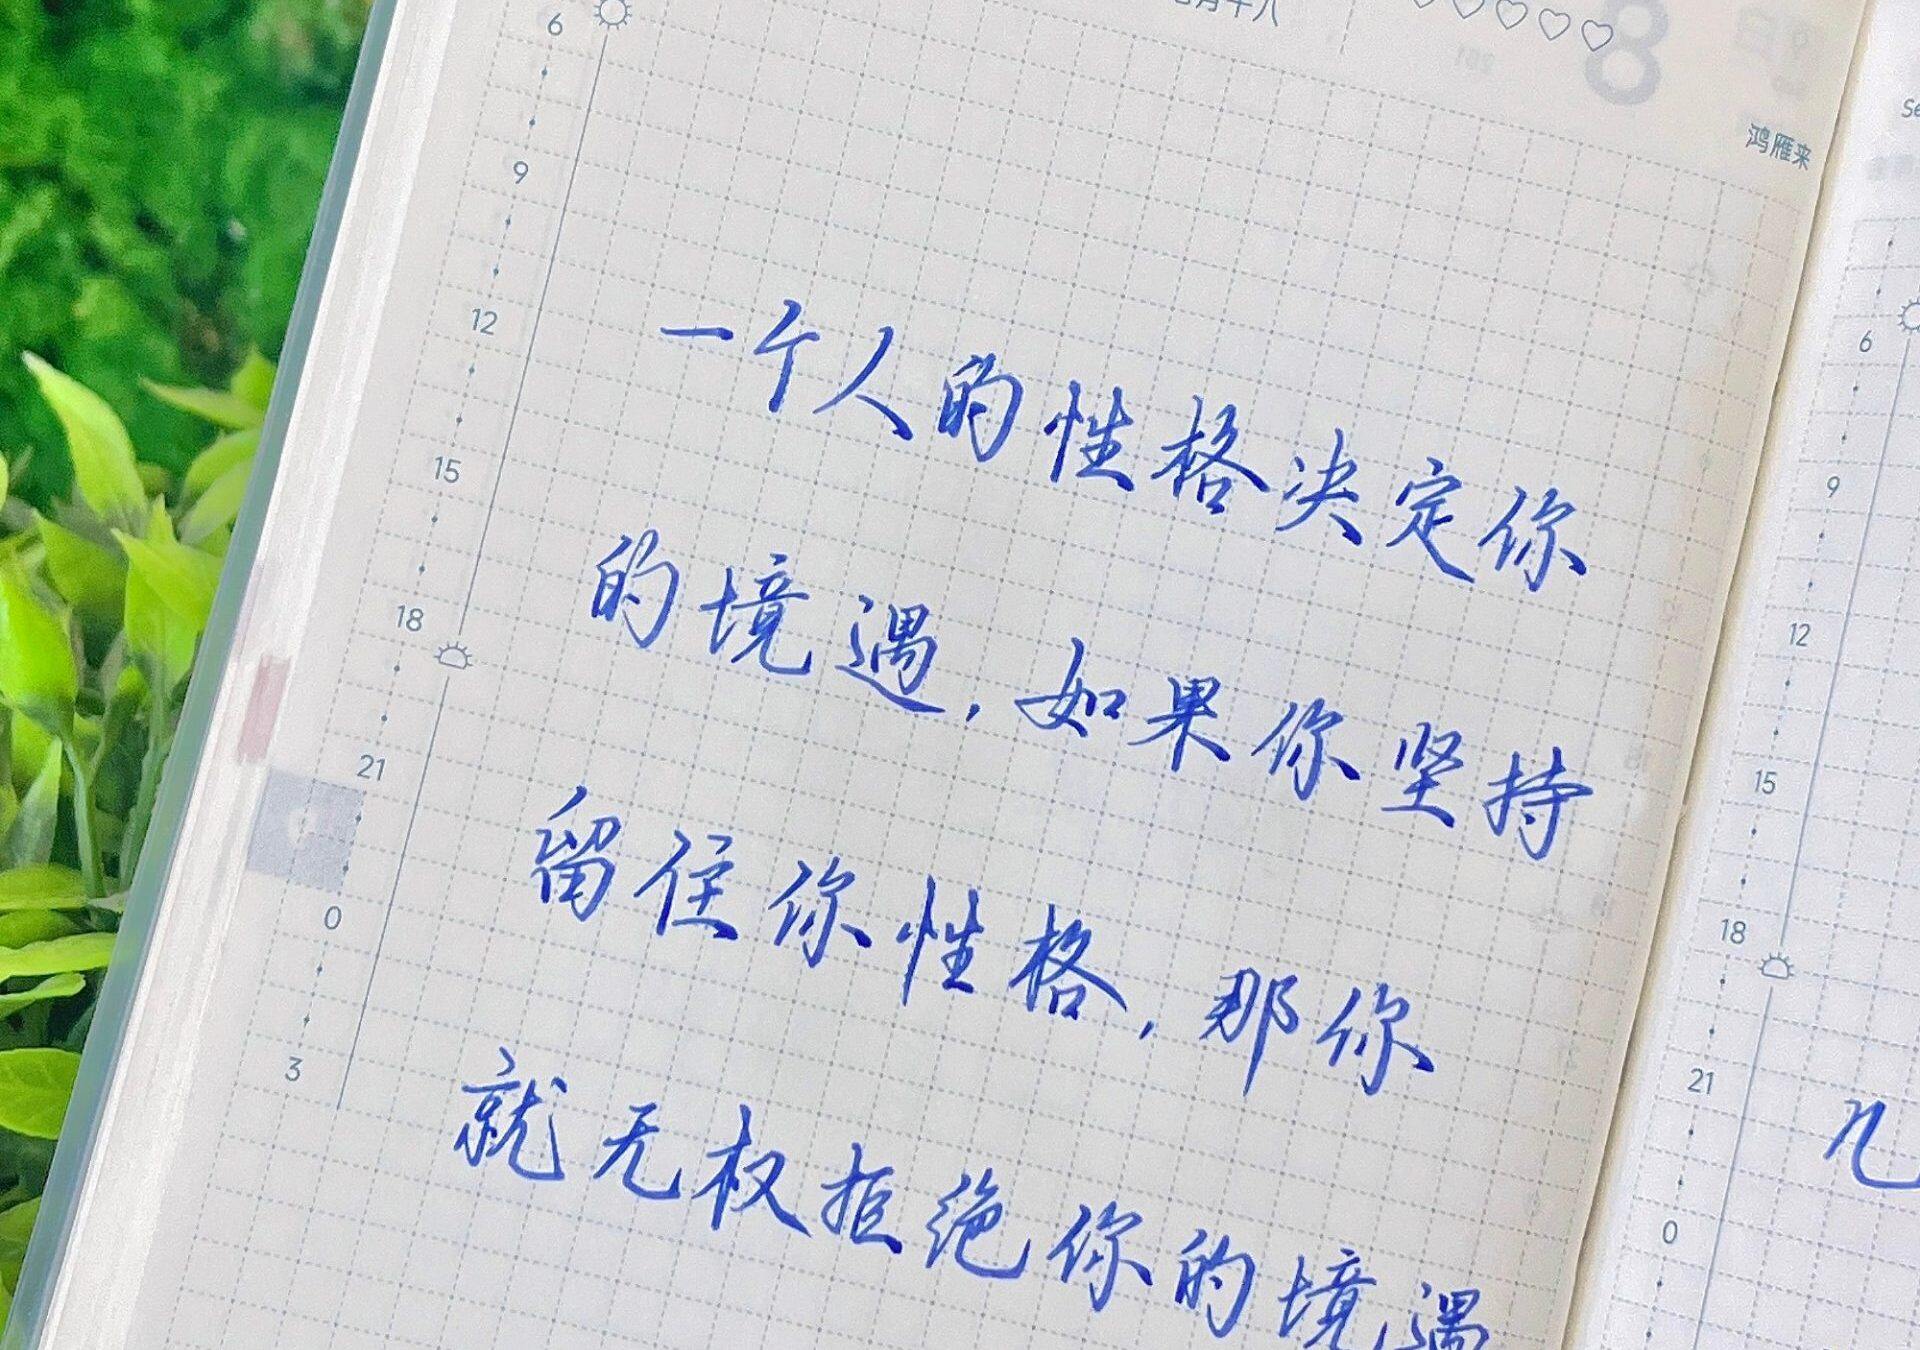 鸿雁来
6
9
12
15
18
21
0
3
一个人的性格决定你
的境遇,如果你坚持
留住你性格,那你
就无权拒绝你的境遇
6
9
12
15
18
21
0